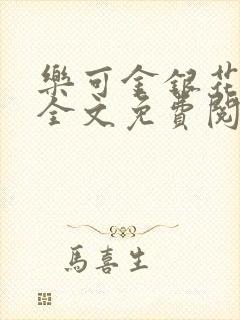 樂可金銀花
全文免費閱
馬喜生